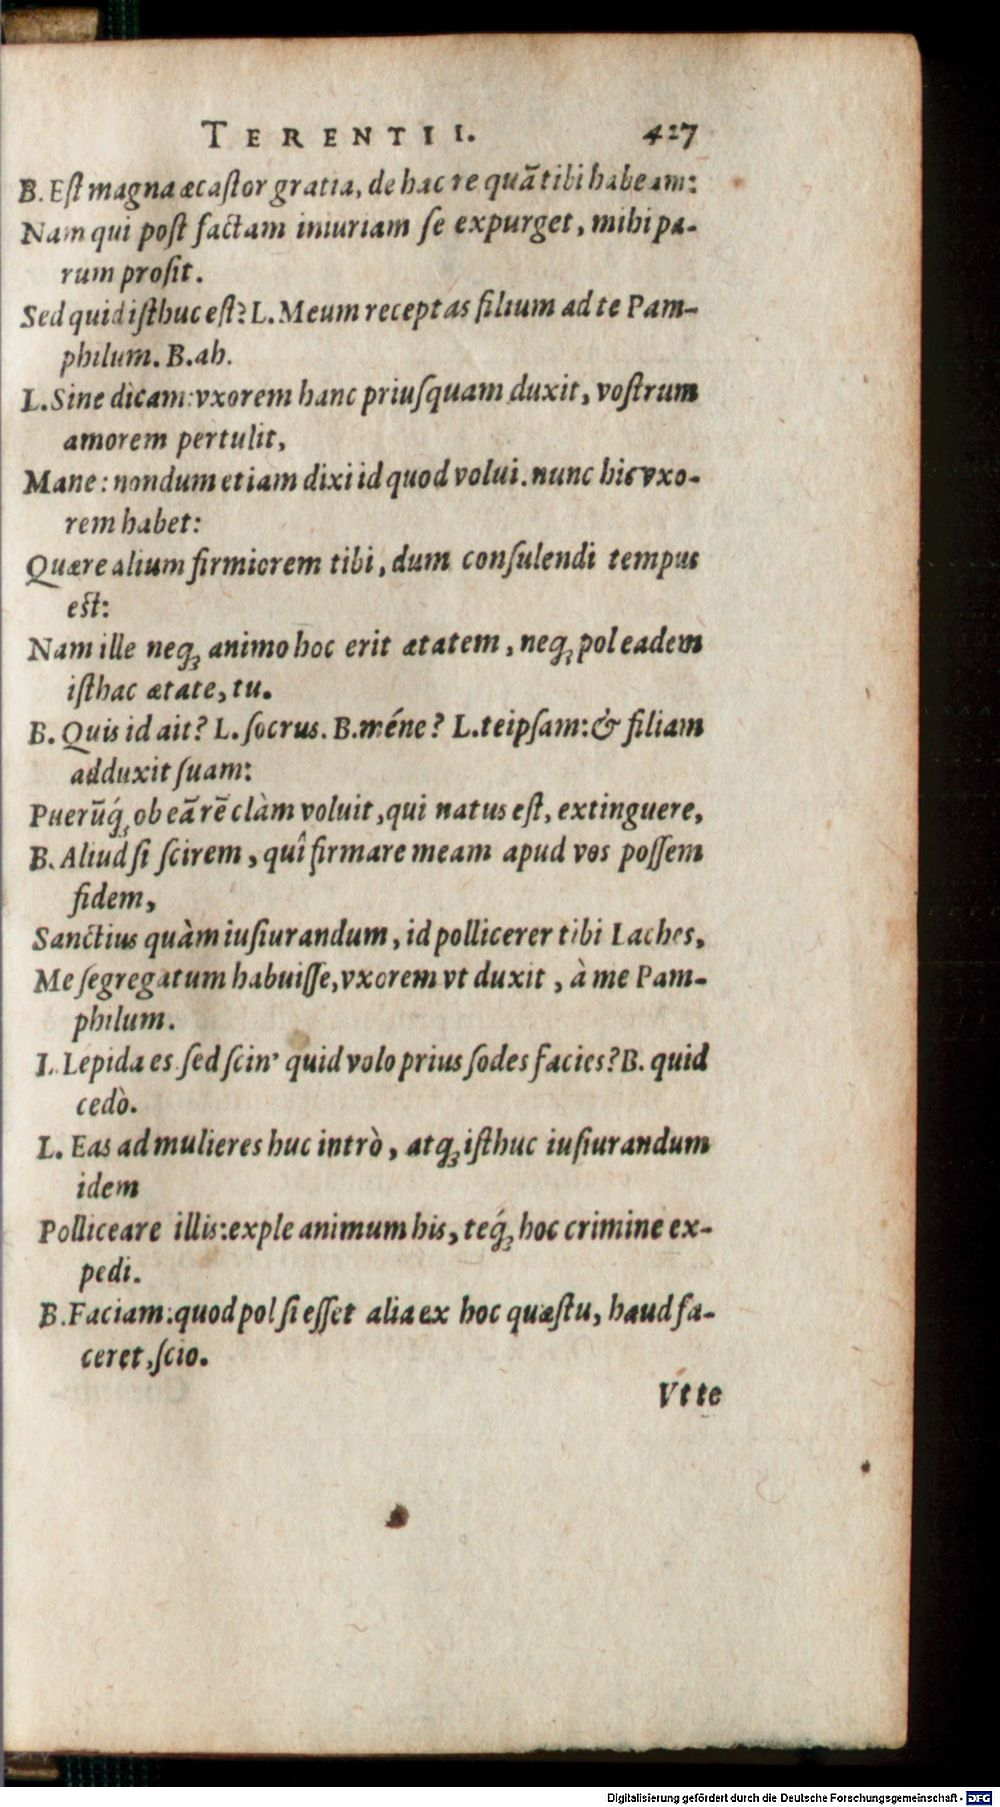 TERENTII. 427
B. Eſt magna æcaſtor gratia, de hac re quā tibi habeam:
Nam qui poſt factam iniuriam ſe expurget, mihi pa-
rum proſit.
Sed quid iſthuc eſt? L. Meum receptas filium ad te Pam-
philum. B. ah.
L. Sine dicam: vxorem hanc priuſquam duxit, voſtrum
amorem pertulit,
Mane: nondum etiam dixi id quod volui. nunc hic vxo-
rem habet:
Quære alium firmiorem tibi, dum conſulendi tempus
eſt:
Nam ille neq; animo hoc erit ætatem, neq; pol eadem
iſthac ætate, tu.
B. Quis id ait? L. ſocrus. B. méne? L. teipſam: & filiam
adduxit ſuam:
Puerūq́; ob eā rē clàm voluit, qui natus eſt, extinguere,
B. Aliud ſi ſcirem, quî firmare meam apud vos poſſem
fidem,
Sanctius quàm iuſiurandum, id pollicerer tibi Laches,
Me ſegregatum habuiſſe, vxorem vt duxit, à me Pam-
philum.
L. Lepida es. ſed ſcin' quid volo prius ſodes facies? B. quid
cedò.
L. Eas ad mulieres huc intrò, atq; iſthuc iuſiurandum
idem
Polliceare illis: exple animum his, teq́; hoc crimine ex-
pedi.
B. Faciam: quod pol ſi eſſet alia ex hoc quæſtu, haud fa-
ceret, ſcio.
Vt te
Digitalisierung gefördert durch die Deutsche Forschungsgemeinschaft - DFG